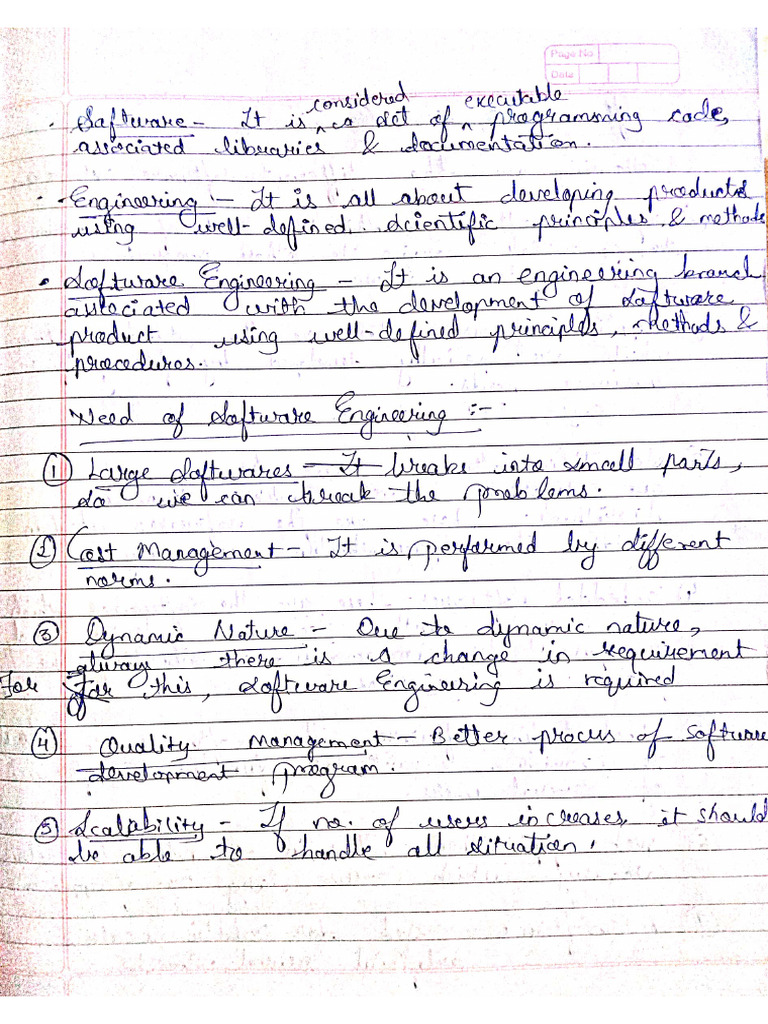 Page No
Date
• Software - It is considered as set of executable programming code,
associated libraries & documentation.
• Engineering :- It is all about developing products
using well-defined scientific principles & methods
• Software Engineering - It is an engineering branch
associated with the development of software
product using well-defined principles, methods &
procedures.
Need of Software Engineering :-
① Large Softwares - It breaks into small parts,
so we can break the problems.
② Cost Management - It is performed by different
norms.
③ Dynamic Nature - Due to dynamic nature,
always there is a change in requirement
For for this, software Engineering is required
④ Quality Management - Better procus of software
development program.
⑤ Scalability - If no. of users increases, it should
be able to handle all situation.